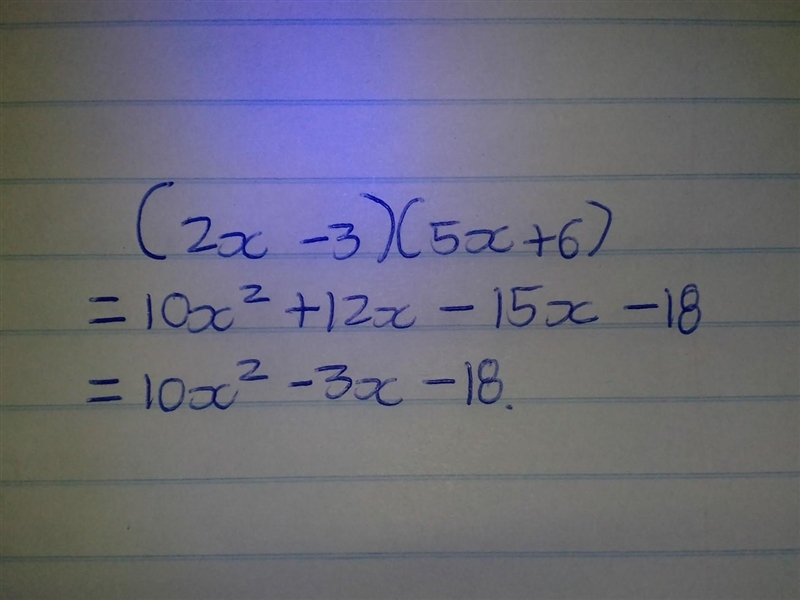 (2x -3)(5x+6)
= 10x² +12x - 15x - 18
= 10x² -3x -18.